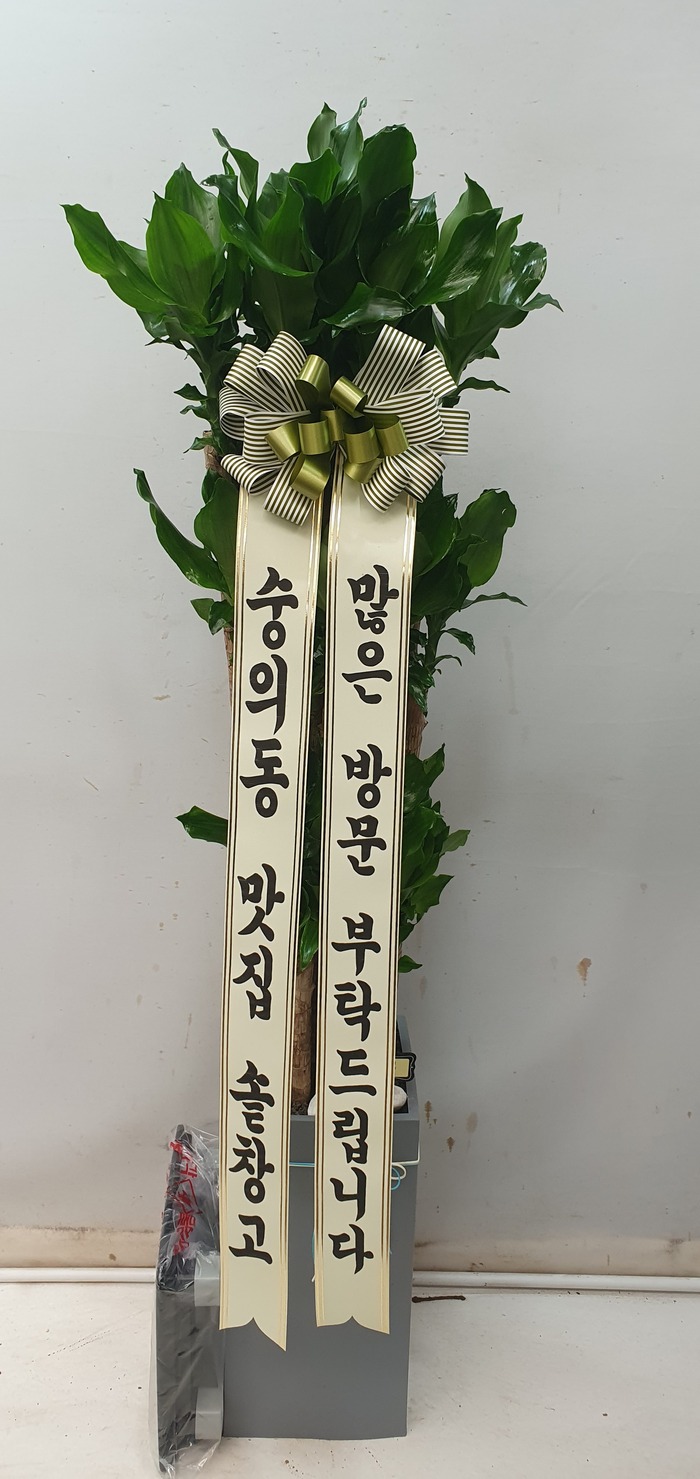 숭의동 맛집 솥창고
많은 방문 부탁드립니다